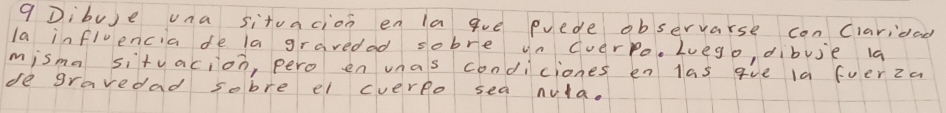 9 Dibuje una situación en la que puede observarse con Claridad
la influencia de la gravedad sobre un cuerpo. Luego, dibuje la
misma situación, pero en unas condiciones en las que la fuerza
de gravedad sobre el cuerpo sea nula.